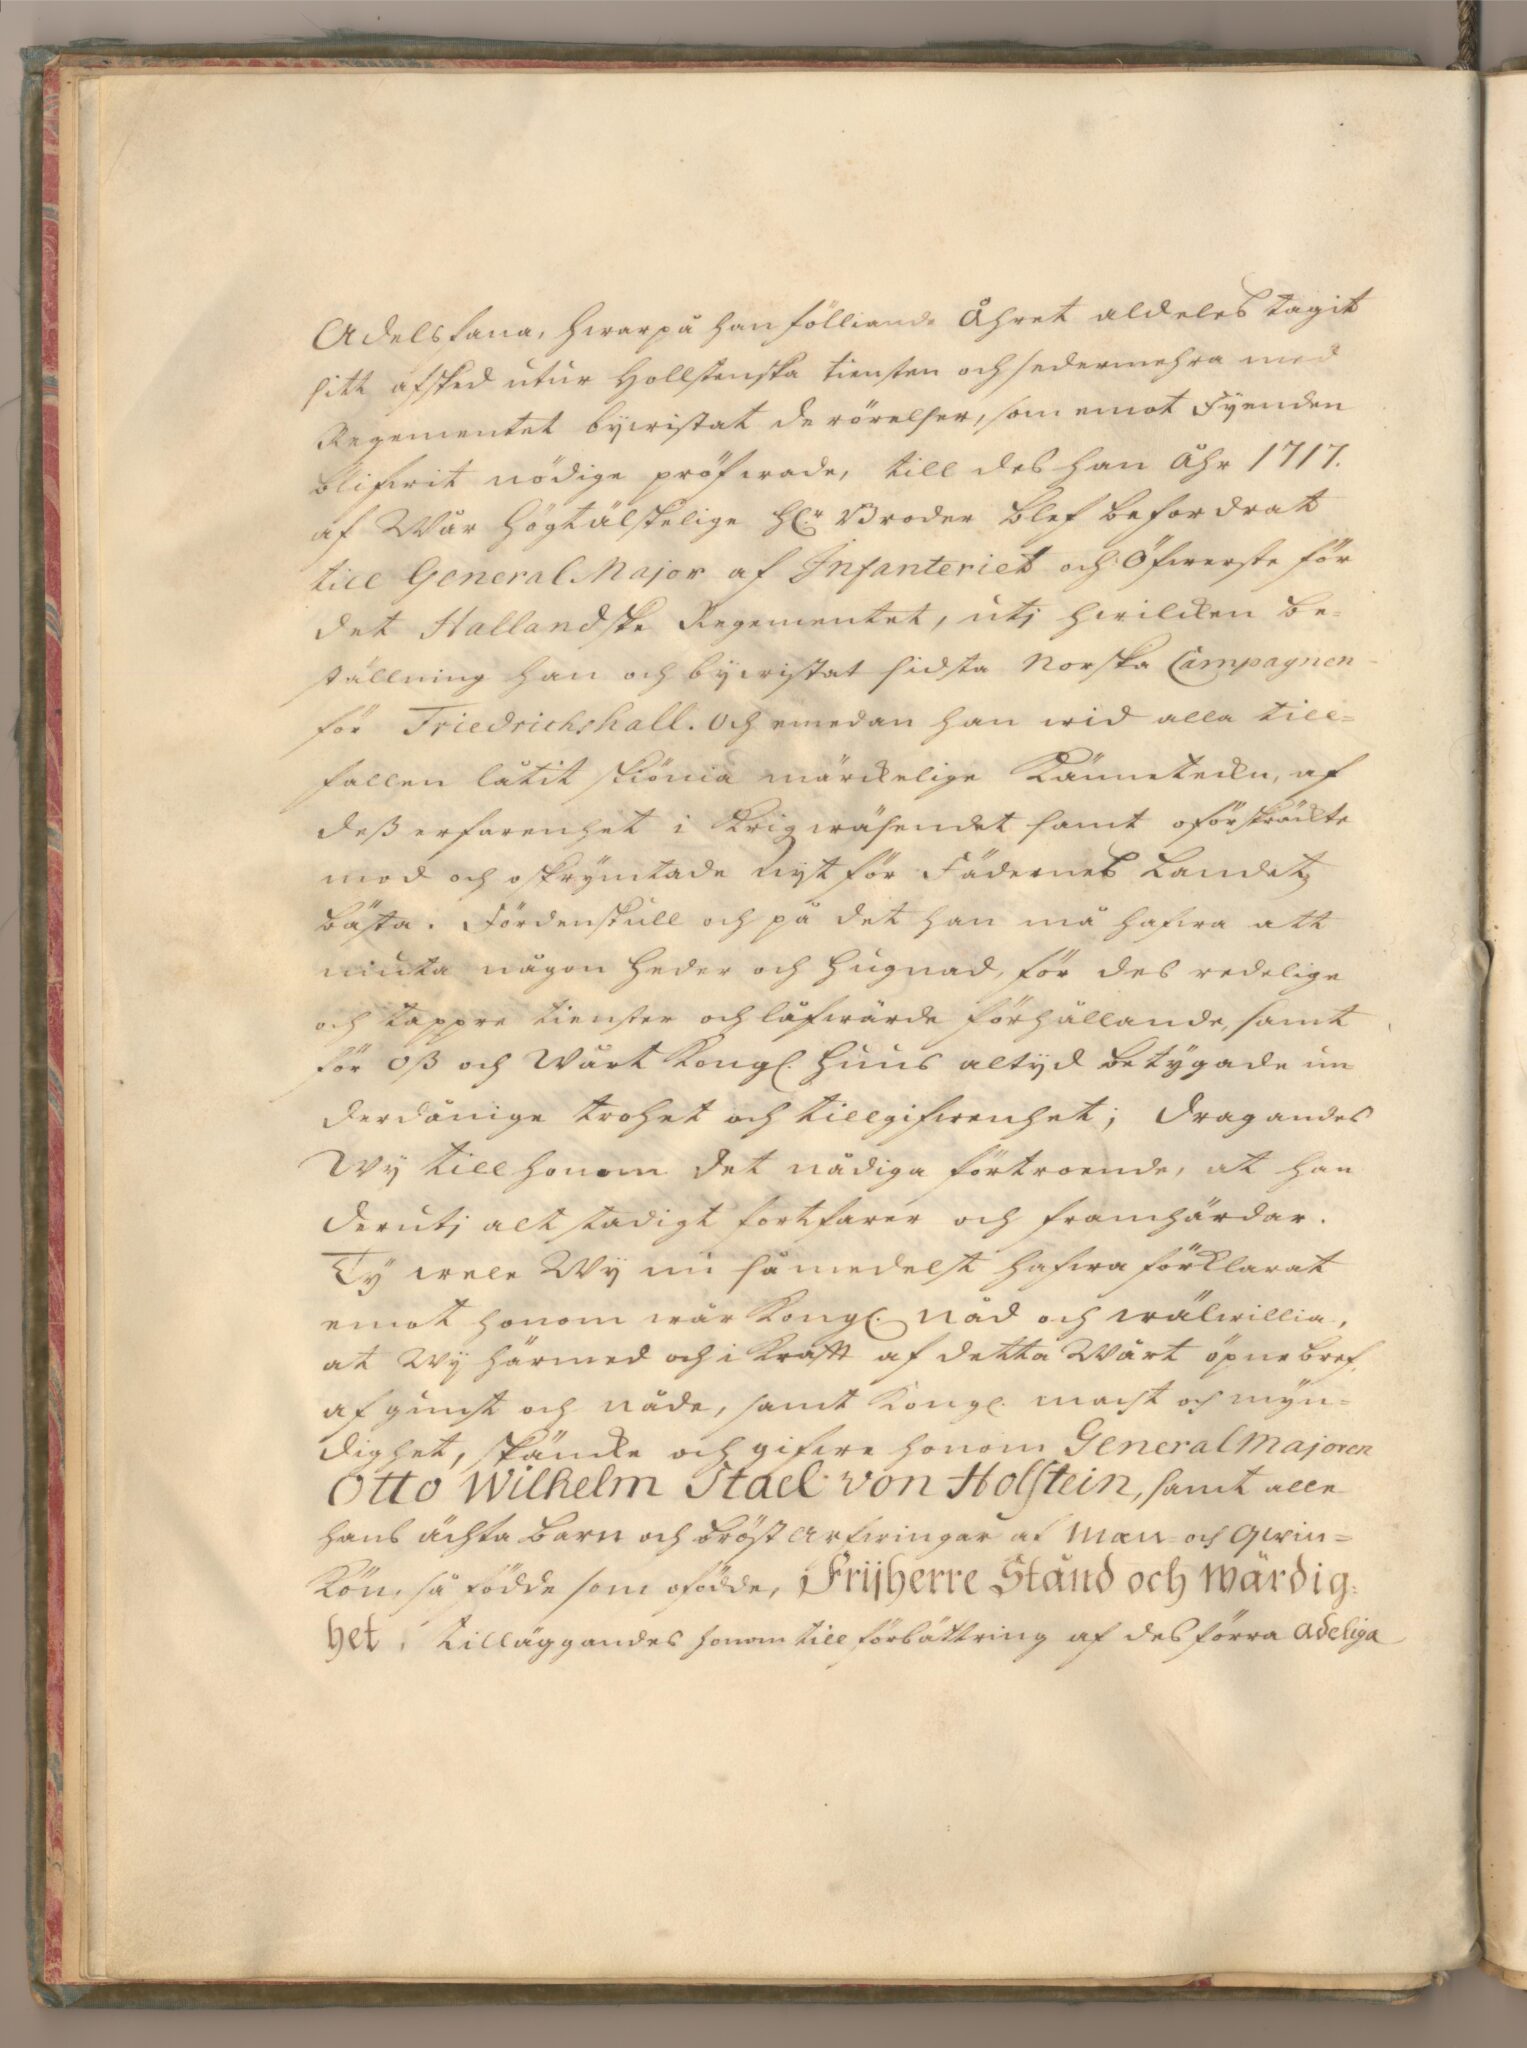 Adelsfana, hwarpå han fölliande Åhret aldeles tagit
sitt afsked utur Hollstenska tiensten och sedermehra med
Regementet bywistat de rörelser, som emot Fyenden
blifwit nödige pröfwade, till des han Åhr 1717.
af Wår Högtälskelige H:r Broder blef befordrat
till General Major af Infanteriet och Öfwerste för
det Hallandske Regementet, utj hwilcken be-
ställning han och bywistat sidsta Norska Campagnen
för Friedrichshall. Och emedan han wid alla till-
fällen låtit skiönia märckelige Känneteckn, af
deß erfarenhet i Krigzwäsendet samt oförskräckte
mod och oskrymtade nijt för Fädernes Landetz
bästa. Fördenskull och på det han må hafwa att
niuta någon heder och hugnad, för des redelige
och tappre tienster och låfwärde förhållande, samt
för Oß och Wårt Kongl. Huus altijd betygade un
derdånige trohet och tillgifwenhet; dragandes
Wy till honom det nådiga förtroende, at han
derutj alt stadigt fortfarer och framhärdar.
Ty wele Wy nu såmedelst hafwa förklarat
emot honom wår Kongl. Nåd och wälwillia,
at Wy härmed och i Kraft af detta Wårt öpne bref,
af gunst och nåde, samt Kongl. macht och myn-
dighet, skäncke och gifwe honom General Majoren
Otto Wilhelm Stael von Holstein, samt alle
hans ächta barn och bröst Arfwingar af Man- och Qwin-
Kön, så födde som ofödde, Frijherre Stånd och Wärdig-
het, tilläggandes honom till förbättring af des förra adeliga